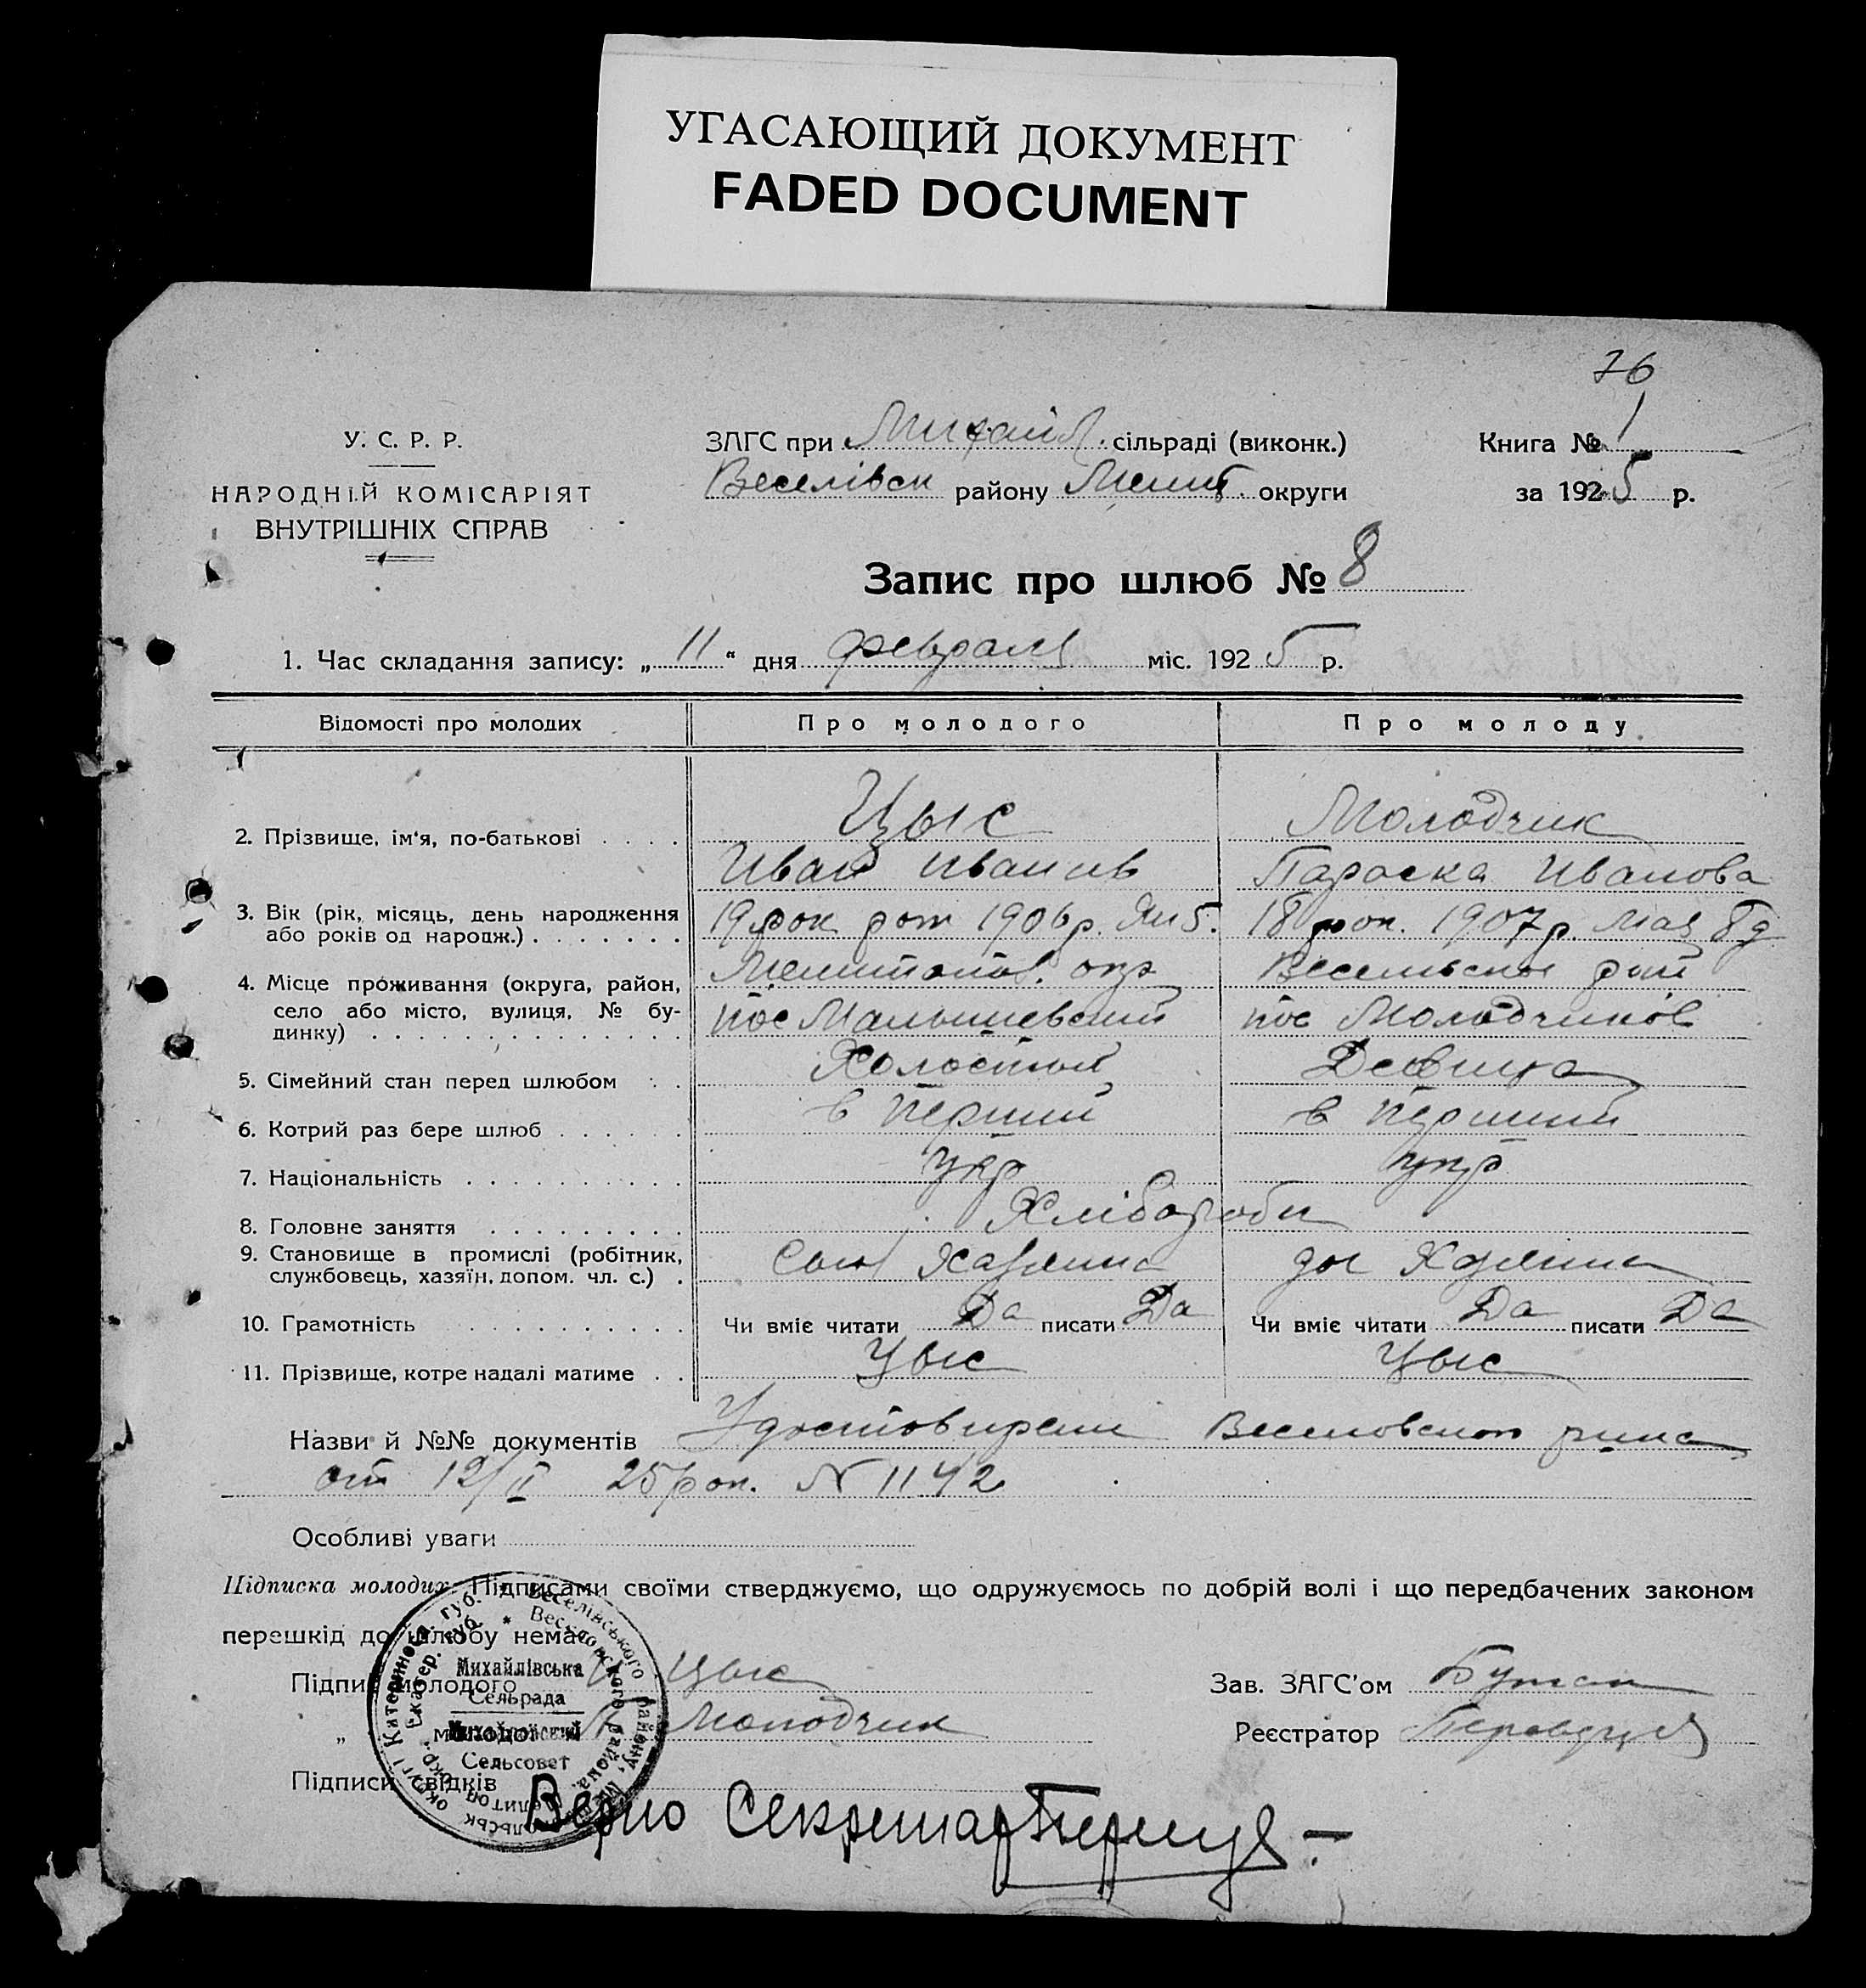 УГАСАЮЩИЙ ДОКУМЕНТ
FADED DOCUMENT
76
У. С. Р. Р.
НАРОДНІЙ КОМІСАРІЯТ
ВНУТРІШНІХ СПРАВ
ЗАГС при Михайл. сільраді (виконк.)
Веселівск району Мелит. округи
Книга № 1
за 1925 р.
Запис про шлюб № 8
1. Час складання запису: „ 11 “ дня февраля міс. 1925 р.
Відомості про молодих Про молодого Про молоду
2. Прізвище, ім‘я, по-батькові Цыс Молодчик
Иван Иванив Параска Иванова
3. Вік (рік, місяць, день народження 19 рок рот 1906 р. Ян 5. 18 рок. 1907 р. Мая 8 д
або років од нарадж.)
4. Місце проживання (округа, район, Мелитопов. окр Весельвское рай
село або місто, вулиця, № бу- пос Малышевский пос Молодчиков
динку)
5. Сімейний стан перед шлюбом Холостый Девица
6. Котрий раз бере шлюб в перший в перший
7. Національність укр укр
8. Головне заняття Хлібороби
9. Становище в промислі (робітник,
службовець, хазяїн, допом. чл. с.) Сын Хазяина доч Хазяина
10. Грамотність Чи вміє читати Да писати Да Чи вміє читати Да писати Да
11. Прізвище, котре надалі матиме Цыс Цыс
Назви й №№ документів Удостовирени Веселовского рика
от 12/II 25 рок. N 1142
Особливі уваги
Підписка молодих: Підписами своїми стверджуємо, що одружуємось по добрій волі і що передбачених законом
перешкід до шлюбу немає
Підпис молодого Цыс
Зав. ЗАГС'ом
„ молодої Молодчик
Реєстратор
Підписи свідків
Михайлівська
Сельрада
Михайловский
Сельсовет
Верно Секретар